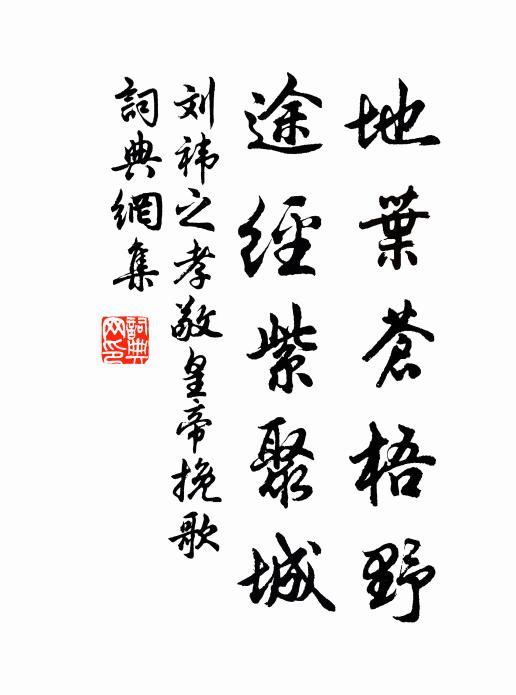 地葉蒼梧野
途經紫聚城
刘禕之孝敬皇帝挽歌
詞典網集
詞典网印